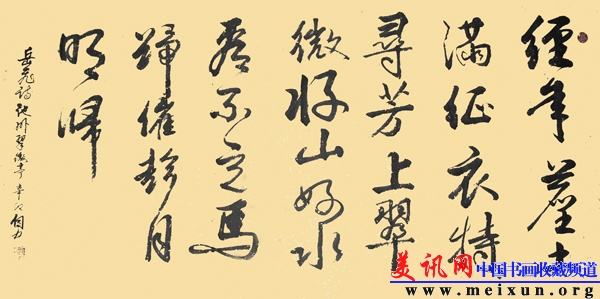 經年塵土
滿征衣特
尋芳上翠
微好山好水
看不足馬
蹄催趁月
明歸
岳飛詩池州翠微亭辛卯自力
美讯网 中国书画收藏频道
www.meixun.org